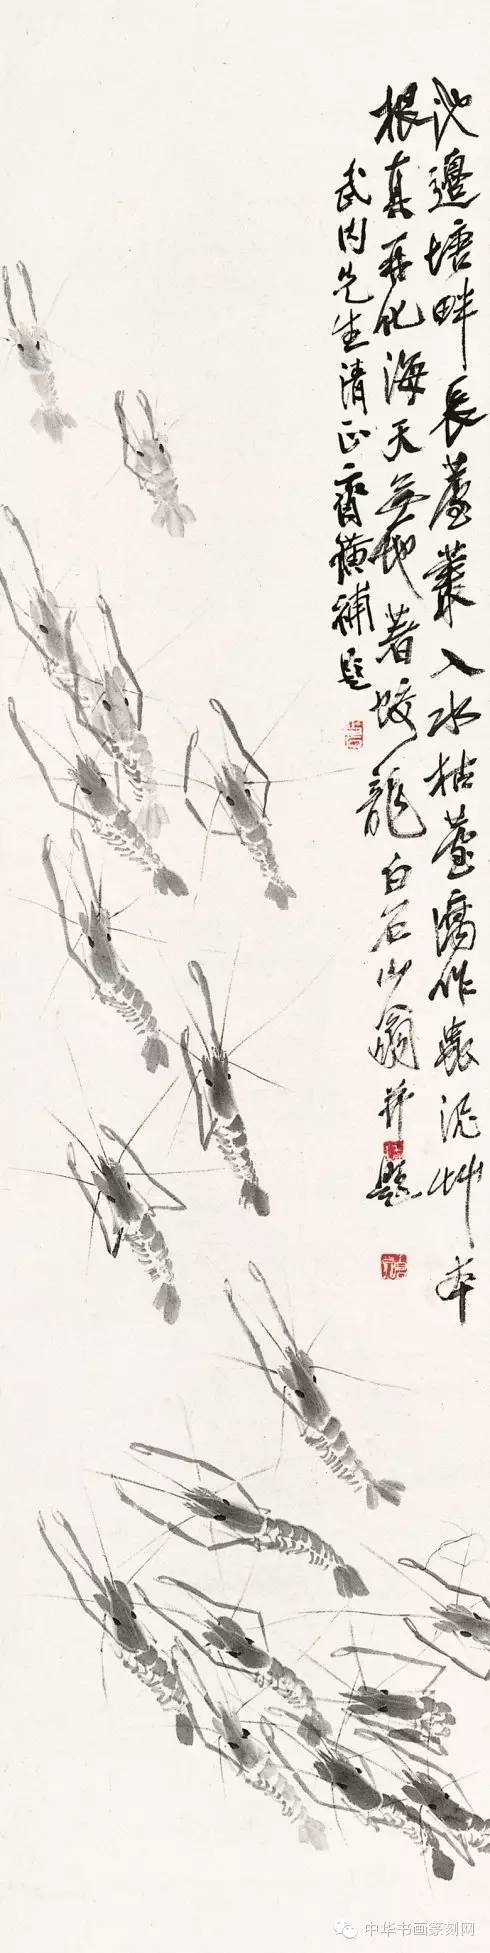 池邊塘畔長蘆叢入水枯蘆腐作蟲泥草本
根真再化海天無地著蛟龍白石山翁并題
武内先生清正齊璜補題
中华书画篆刻网